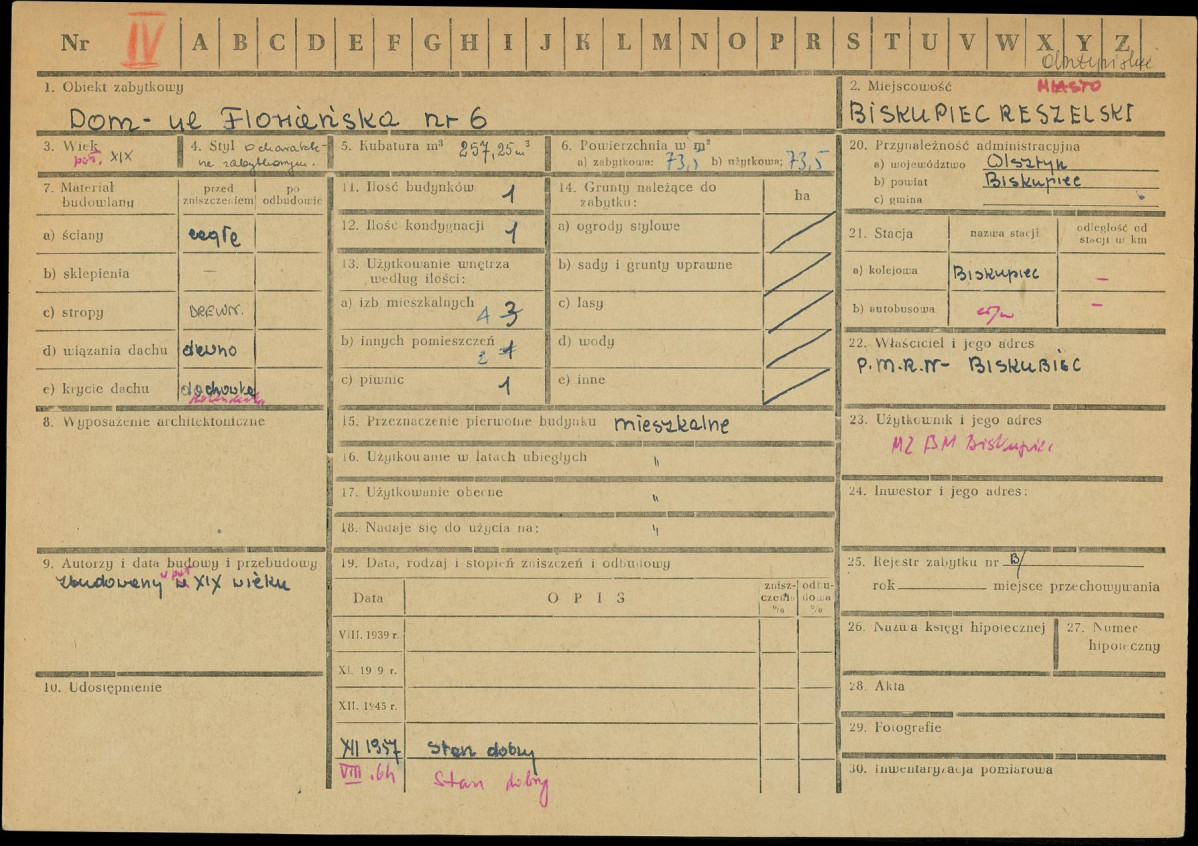 Nr IV A B C D E F G H I J K L M N O P R S T U V W X Y Z
1. Obiekt zabytkowy
Dom - ul Floriańska nr 6
2. Miejscowość MIASTO
BISKUPIEC RESZELSKI
3. Wiek
poł. XIX
4. Styl o charakte-
rze zabytkowym.
5. Kubatura m³ 257,25 m³
6. Powierzchnia w m²
a) zabytkowa: 73,5 b) użytkowa: 73,5
7. Materiał budowlany
przed zniszczeniem
po odbudowie
a) ściany cegłę
b) sklepienia —
c) stropy DREWN.
d) wiązania dachu
e) krycie dachu dachówka
8. Wyposażenie architektoniczne
9. Autorzy i data budowy i przebudowy
zbudowany w poł XIX wieku
10. Udostępnienie
11. Ilość budynków 1
12. Ilość kondygnacji 1
13. Użytkowanie wnętrza
według ilości:
a) izb mieszkalnych 4 3
b) innych pomieszczeń 2 1
c) piwnic 1
14. Grunty należące do
zabytku:
ha
a) ogrody stylowe
b) sady i grunty uprawne
c) lasy
d) wody
e) inne
15. Przeznaczenie pierwotne budynku mieszkalne
16. Użytkowanie w latach ubiegłych "
17. Użytkowanie obecne "
18. Nadaje się do użycia na: "
19. Data, rodzaj i stopień zniszczeń i odbudowy
Data
OPIS
znisz-
czenia
%
odbu-
dowa
%
VIII. 1939 r.
XI. 19 9 r.
XII. 1945 r.
XII 1957 Stan dobry
VIII. 64 Stan dobry
20. Przynależność administracyjna
a) województwo Olsztyn
b) powiat Biskupiec
c) gmina
21. Stacja
nazwa stacji
odległość od
stacji w km
a) kolejowa Biskupiec —
b) autobusowa w/w —
22. Właściciel i jego adres
P.M.R.N - BISKUBIEC
23. Użytkownik i jego adres
MZBM Biskupiec
24. Inwestor i jego adres:
25. Rejestr zabytku nr B/
rok miejsce przechowywania
26. Nazwa księgi hipotecznej
27. Numer
hipoteczny
28. Akta
29. Fotografie
30. Inwentaryzacja pomiarowa